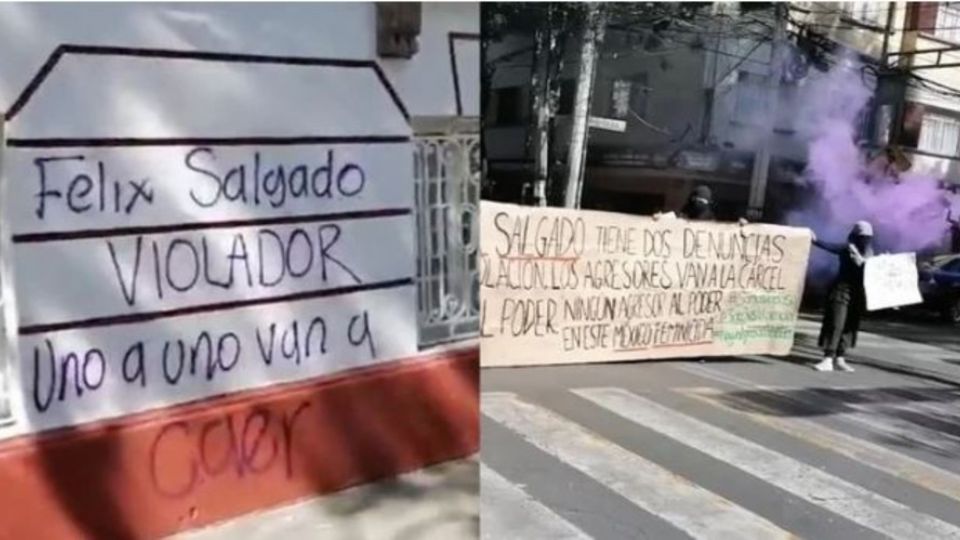 Felix Salgado
VIOLADOR
Uno a uno van a
caer
SALGADO TIENE DOS DENUNCIAS
OLACION. LOS AGRESORES VAN A LA CARCEL
L PODER NINGUN AGRESOR AL PODER
EN ESTE MÉXICO FEMINICIDA